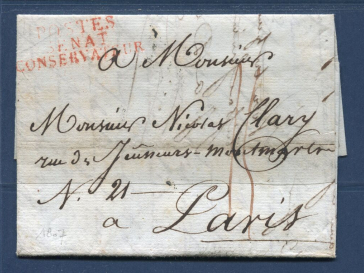 POSTES
SENAT
CONSERVATEUR
A Monsieur
Monsieur Nicolas Clary
rue des Jeuneurs montmartre
N. 21
a Paris
1807